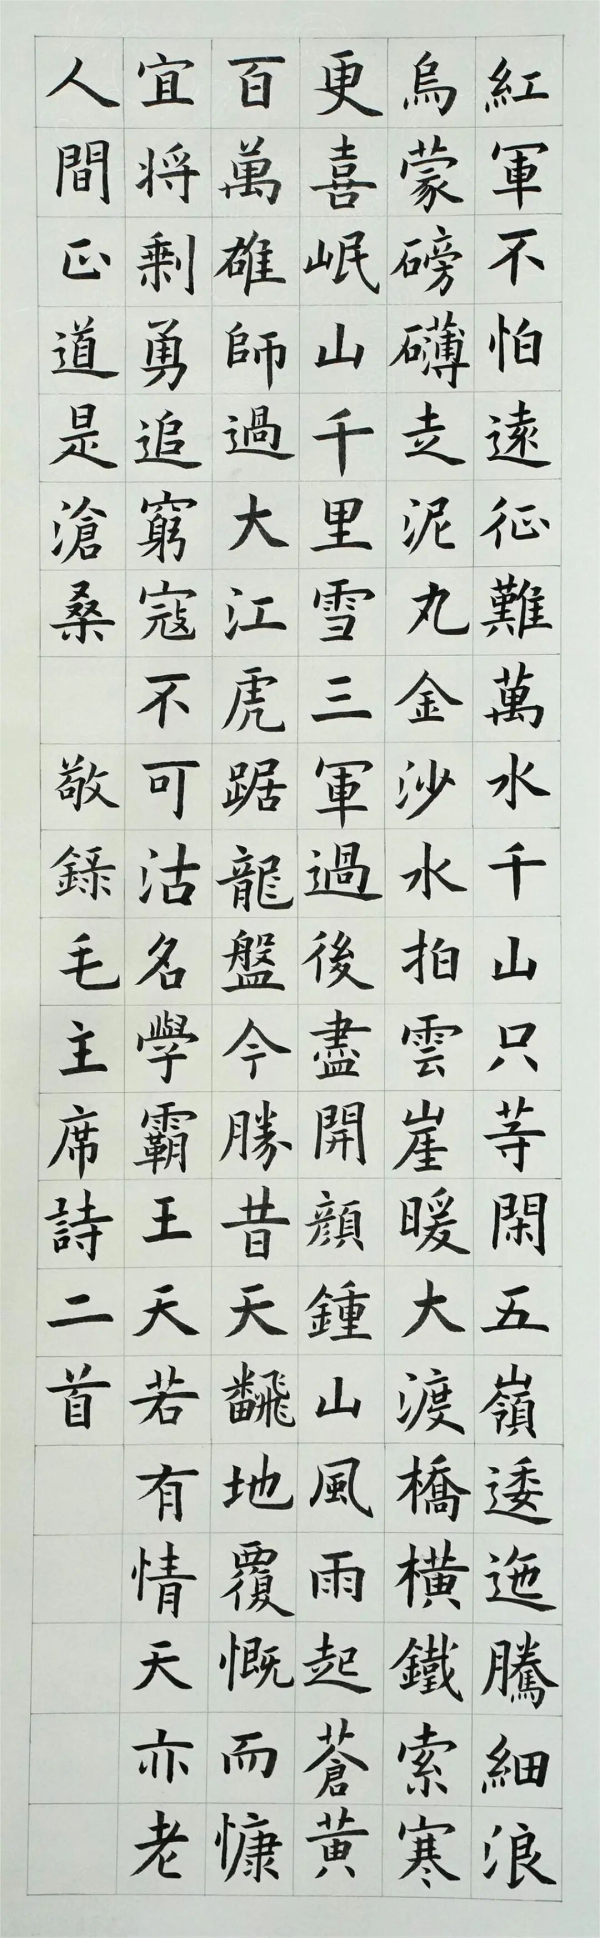 紅軍不怕遠征難萬水千山只等閑五嶺逶迤騰細浪
烏蒙磅礴走泥丸金沙水拍雲崖暖大渡橋橫鐵索寒
更喜岷山千里雪三軍過後盡開顏鍾山風雨起蒼黃
百萬雄師過大江虎踞龍盤今勝昔天飜地覆慨而慷
宜将剩勇追窮寇不可沽名學霸王天若有情天亦老
人間正道是滄桑 敬錄毛主席詩二首